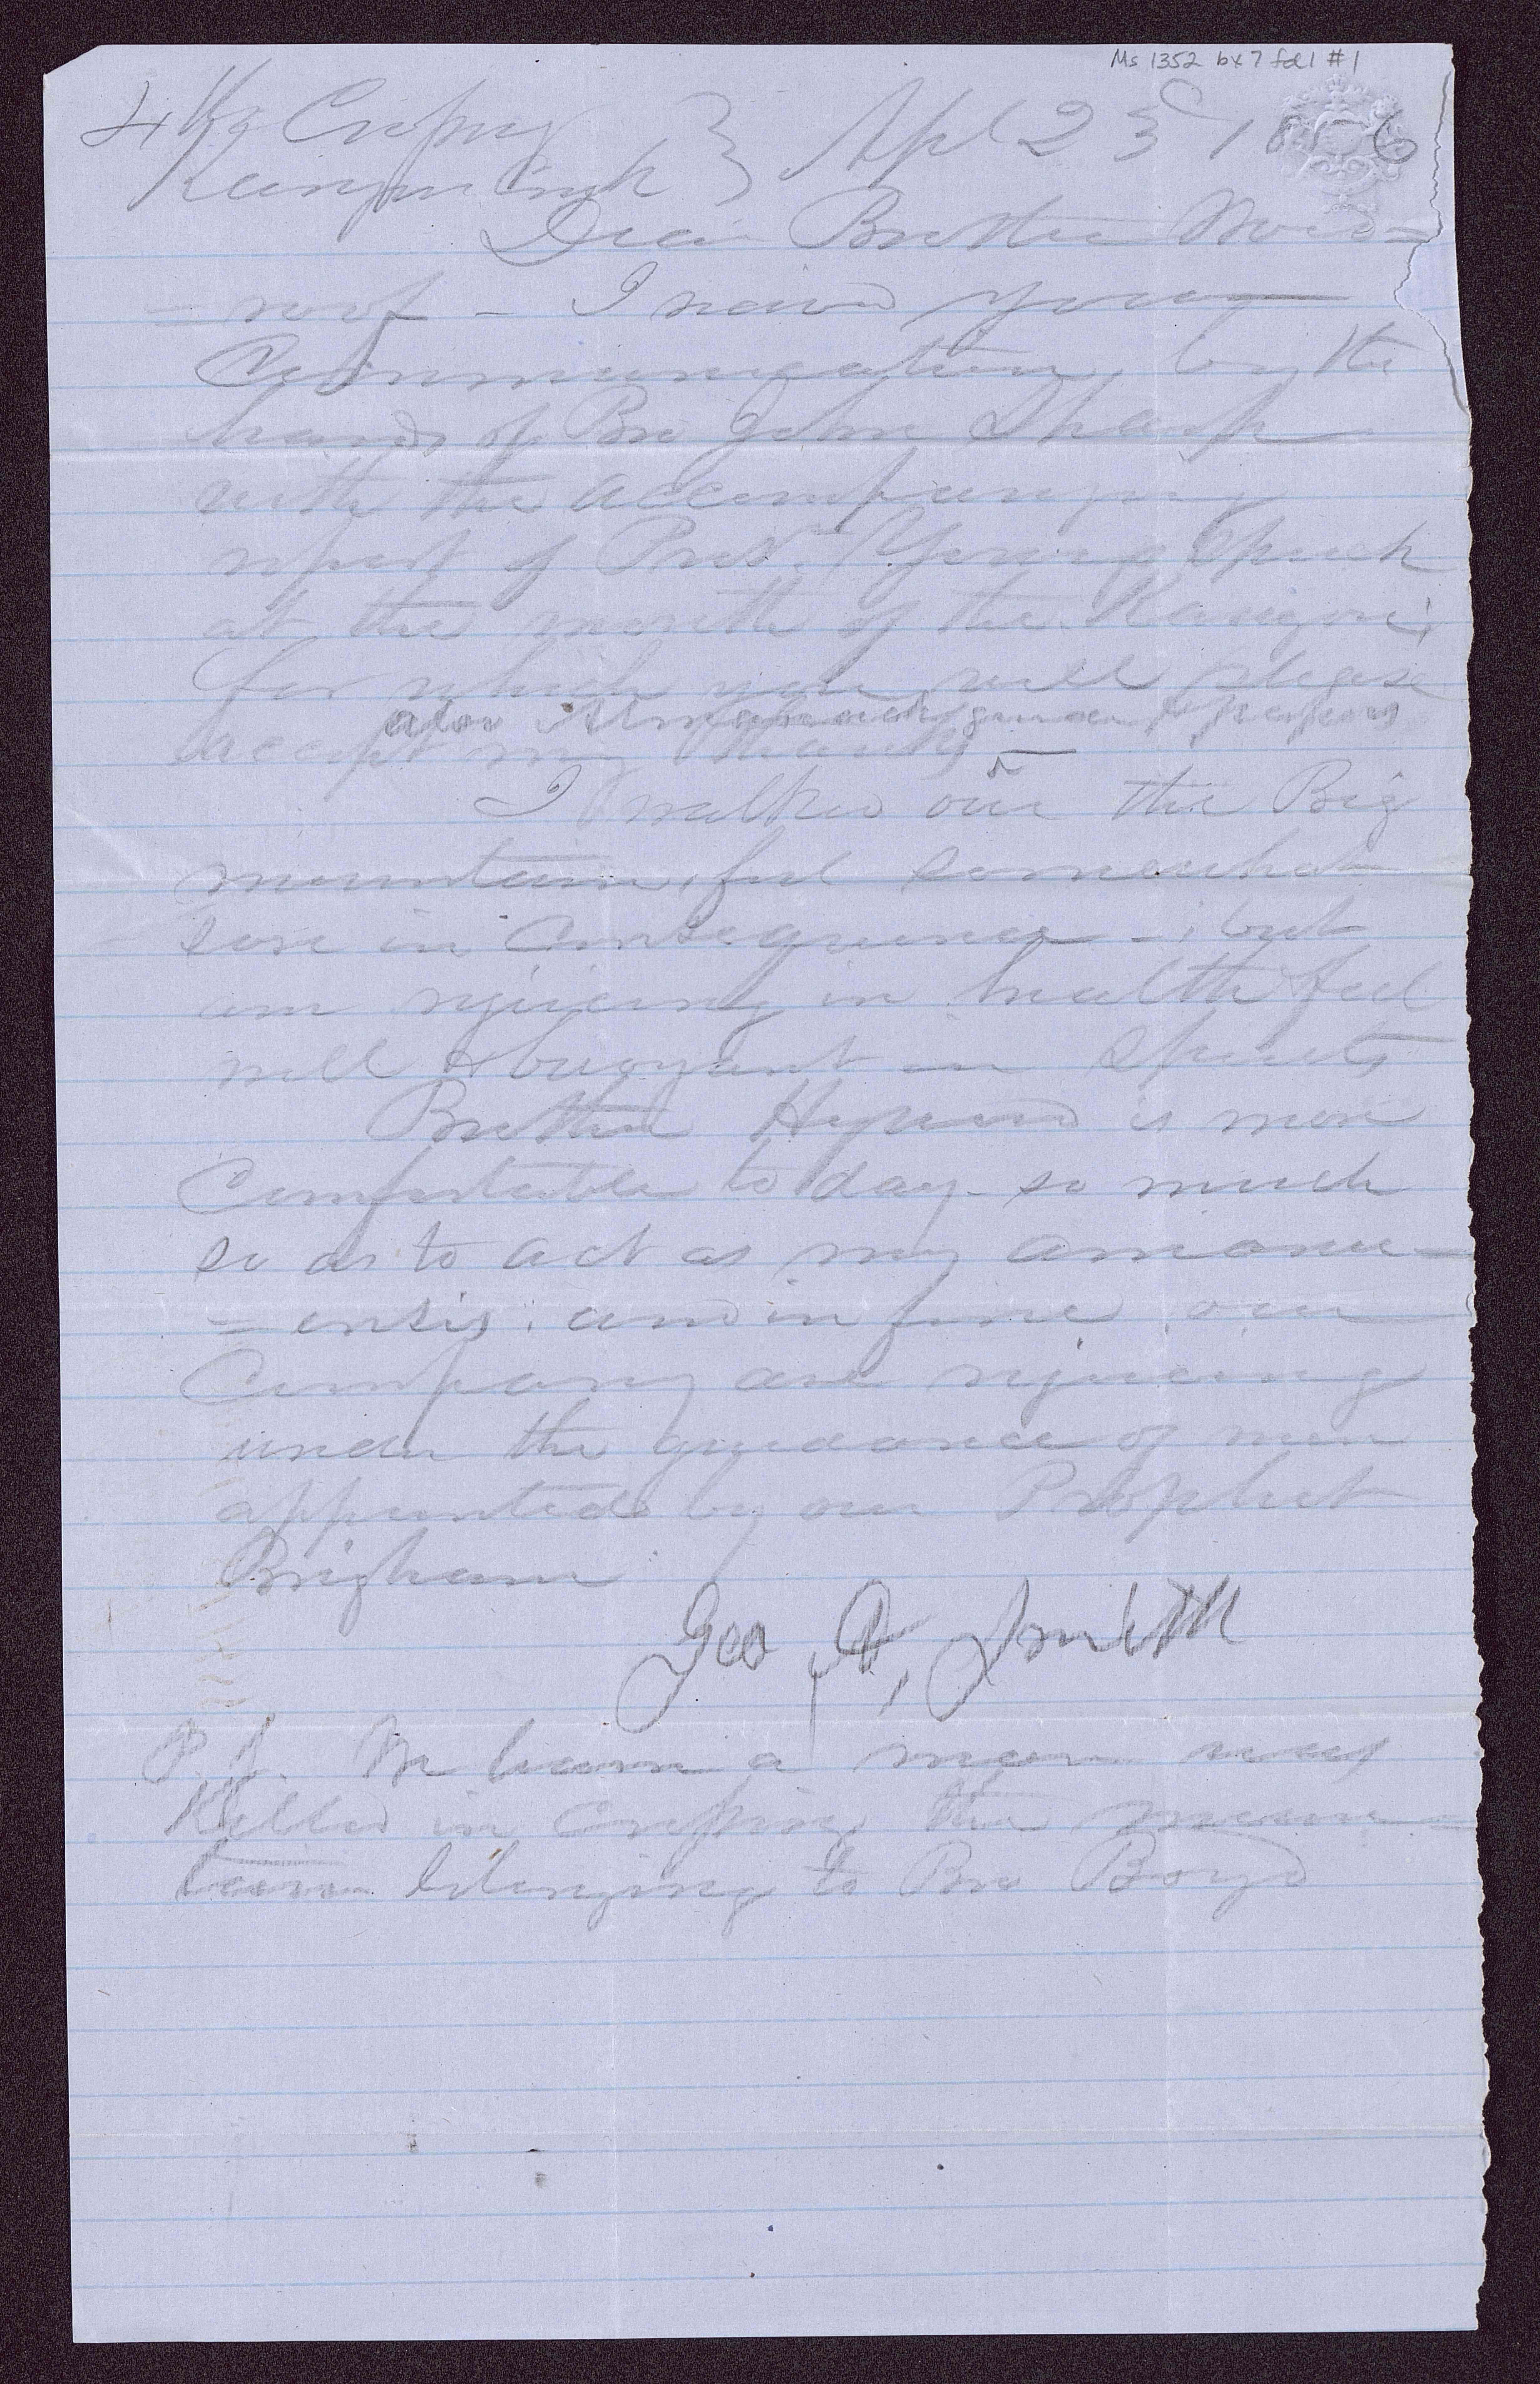 Ms 1352 bx 7 fd 1 #1
4th Crossing } Apl 23d 1856
Kanyon Creek }
Dear Brother Wood=
=ruff - I received your
Communication, by the
hands of Bro John Sharp
with the accompanying
report of Prest. Youngs Speech
at the mouth of the Kanyon;
for which you will please
also Almanack
accept my thanks —
I walked over the Big
mountain, feel somewhat
sore in consequence - ; but
am rejoicing in health feel
well & buoyant in Spirits
Brother Haywood is more
Comfortable to day - so much
so as to act as my amanu=
=ensis; and in fine our
Company are rejoicing
under the guidance of men
appointed by our Prophet
Brigham
Geo A, Smith
P.S. We learn a man was
Killed in Crossing the moun=
tain belonging to Bro Boyd